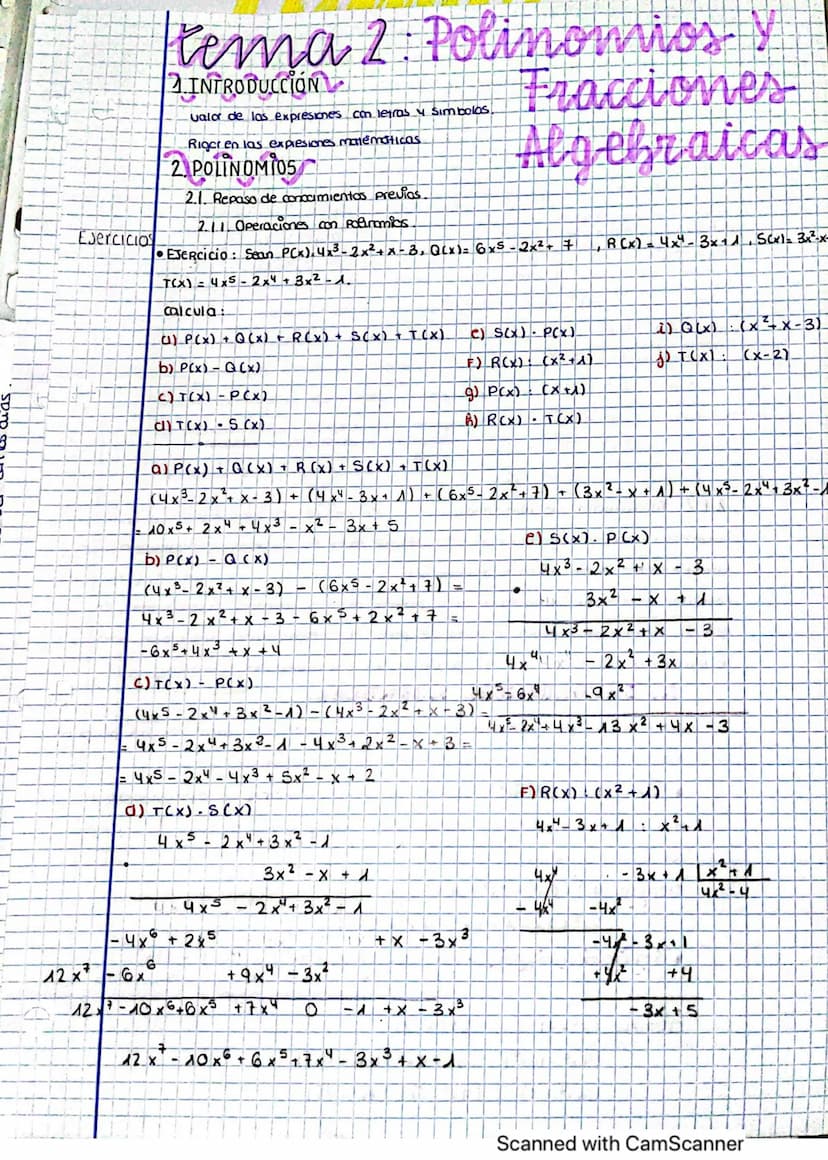 tema 2: Polinomios y
Fracciones
Algebraicas
1. INTRODUCCIÓN
valor de las expresiones con letras y simbolos.
Rigor en las expresiones matemáticas
2. POLINOMIOS
2.1. Repaso de conocimientos previos.
2.1.1. Operaciones con Polinomios.
Ejercicios
• Ejercicio: Sean P(x)=4x³-2x²+x-3, Q(x)=6x⁵-2x²+7, R(x)=4x⁴-3x+1, S(x)=3x²-x
T(x)=4x⁵-2x⁴+3x²-1.
calcula:
a) P(x)+Q(x)+R(x)+S(x)+T(x)
b) P(x)-Q(x)
c) T(x)-P(x)
d) T(x)·S(x)
e) S(x)·P(x)
F) R(x):(x²+1)
g) P(x):(x+1)
h) R(x)·T(x)
i) Q(x):(x²+x-3)
j) T(x):(x-2)
a) P(x)+Q(x)+R(x)+S(x)+T(x)
(4x³-2x²+x-3)+(4x⁴-3x+1)+(6x⁵-2x²+7)+(3x²-x+1)+(4x⁵-2x⁴+3x²-1
=10x⁵+2x⁴+4x³-x²-3x+5
b) P(x)-Q(x)
(4x³-2x²+x-3)-(6x⁵-2x²+7)=
4x³-2x²+x-3-6x⁵+2x²+7=
-6x⁵+4x³+x+4
c) T(x)-P(x)
(4x⁵-2x⁴+3x²-1)-(4x³-2x²+x-3)=
=4x⁵-2x⁴+3x²-1-4x³+2x²-x+3=
=4x⁵-2x⁴-4x³+5x²-x+2
d) T(x)·S(x)
4x⁵-2x⁴+3x²-1
· 3x²-x+1
4x⁵-2x⁴+3x²-1
-4x⁶+2x⁵ +x -3x³
12x⁷-6x⁶ +9x⁴-3x²
12x⁷-10x⁶+6x⁵+7x⁴ 0 -1 +x -3x³
12x⁷-10x⁶+6x⁵+7x⁴-3x³+x-1
e) S(x)·P(x)
4x³-2x²+x-3
· 3x²-x+1
4x³-2x²+x-3
4x⁴ -2x²+3x
4x⁵-6x⁴ -9x²
4x⁵-2x⁴+4x³-13x²+4x-3
F) R(x):(x²+1)
4x⁴-3x+1 : x²+1
4x⁴ -3x+1 x²+1
-4x⁴ -4x² 4x²-4
-4x²-3x+1
+4x² +4
-3x+5
Scanned with CamScanner